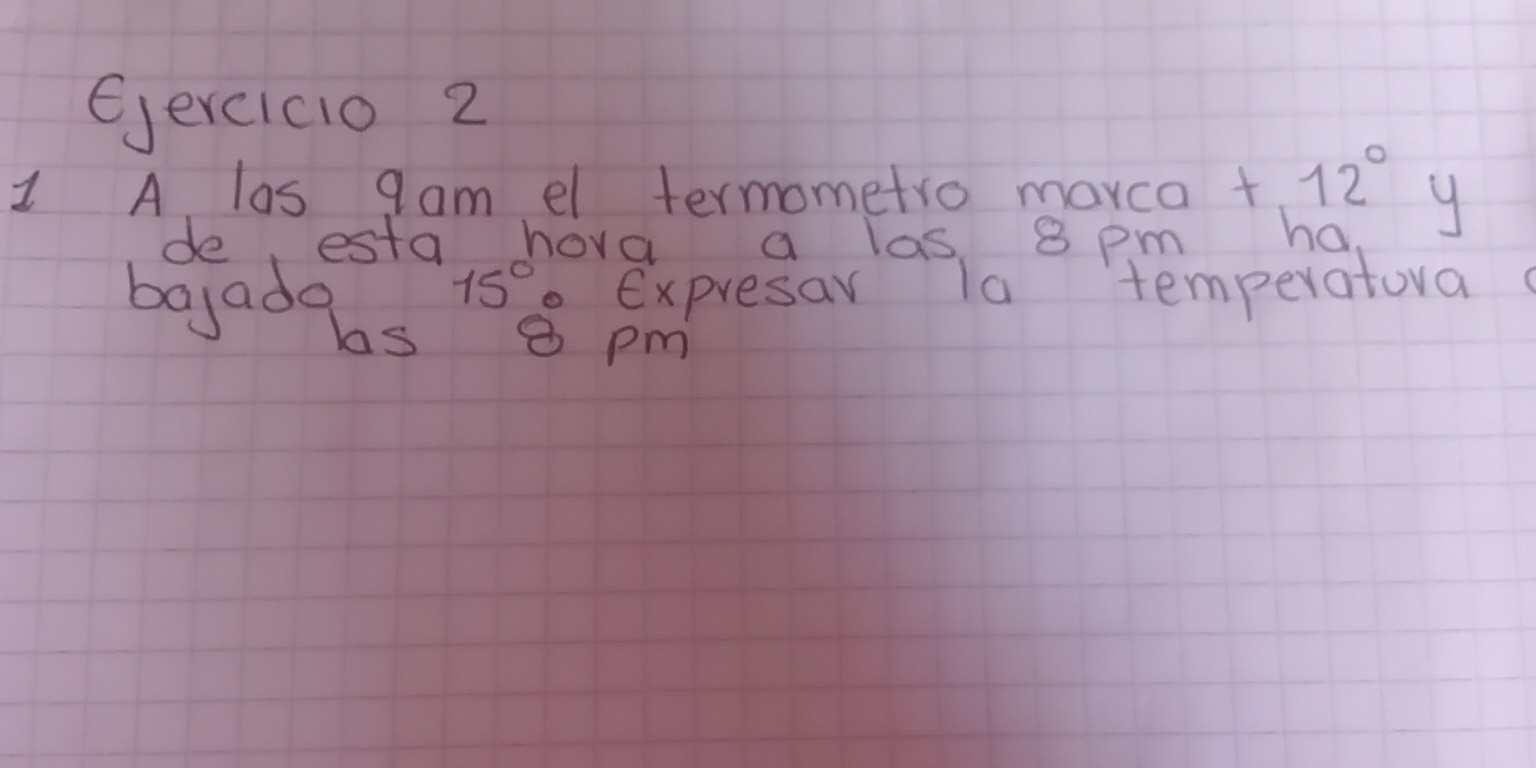 Ejercicio 2
1 A las 9am el termometro marca + 12° y
de esta hora a las 8 pm ha
bajado 15°. Expresar la temperatura
las 8 pm